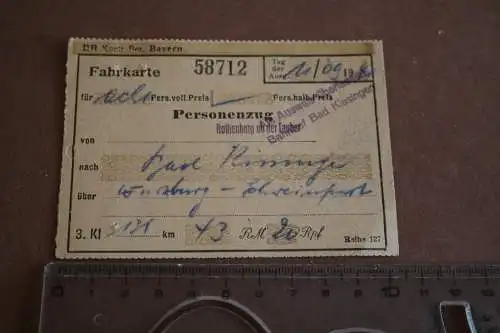 DR Kontr. Bez. Bayern
Fahrkarte 58712 Tag der Ausg. 11/09 19
für acht Pers. voll. Preis Pers. halb. Preis
Personenzug
von Rothenburg ob der Tauber
Bahnhof Bad Kissingen
nach Bad Kissingen
über Würzburg - Schweinfurt
3. Kl km 43 RM 20 Rpf
Reihe 127
0 1 2 3 4 5 6 7 8 9 10 11 12 13